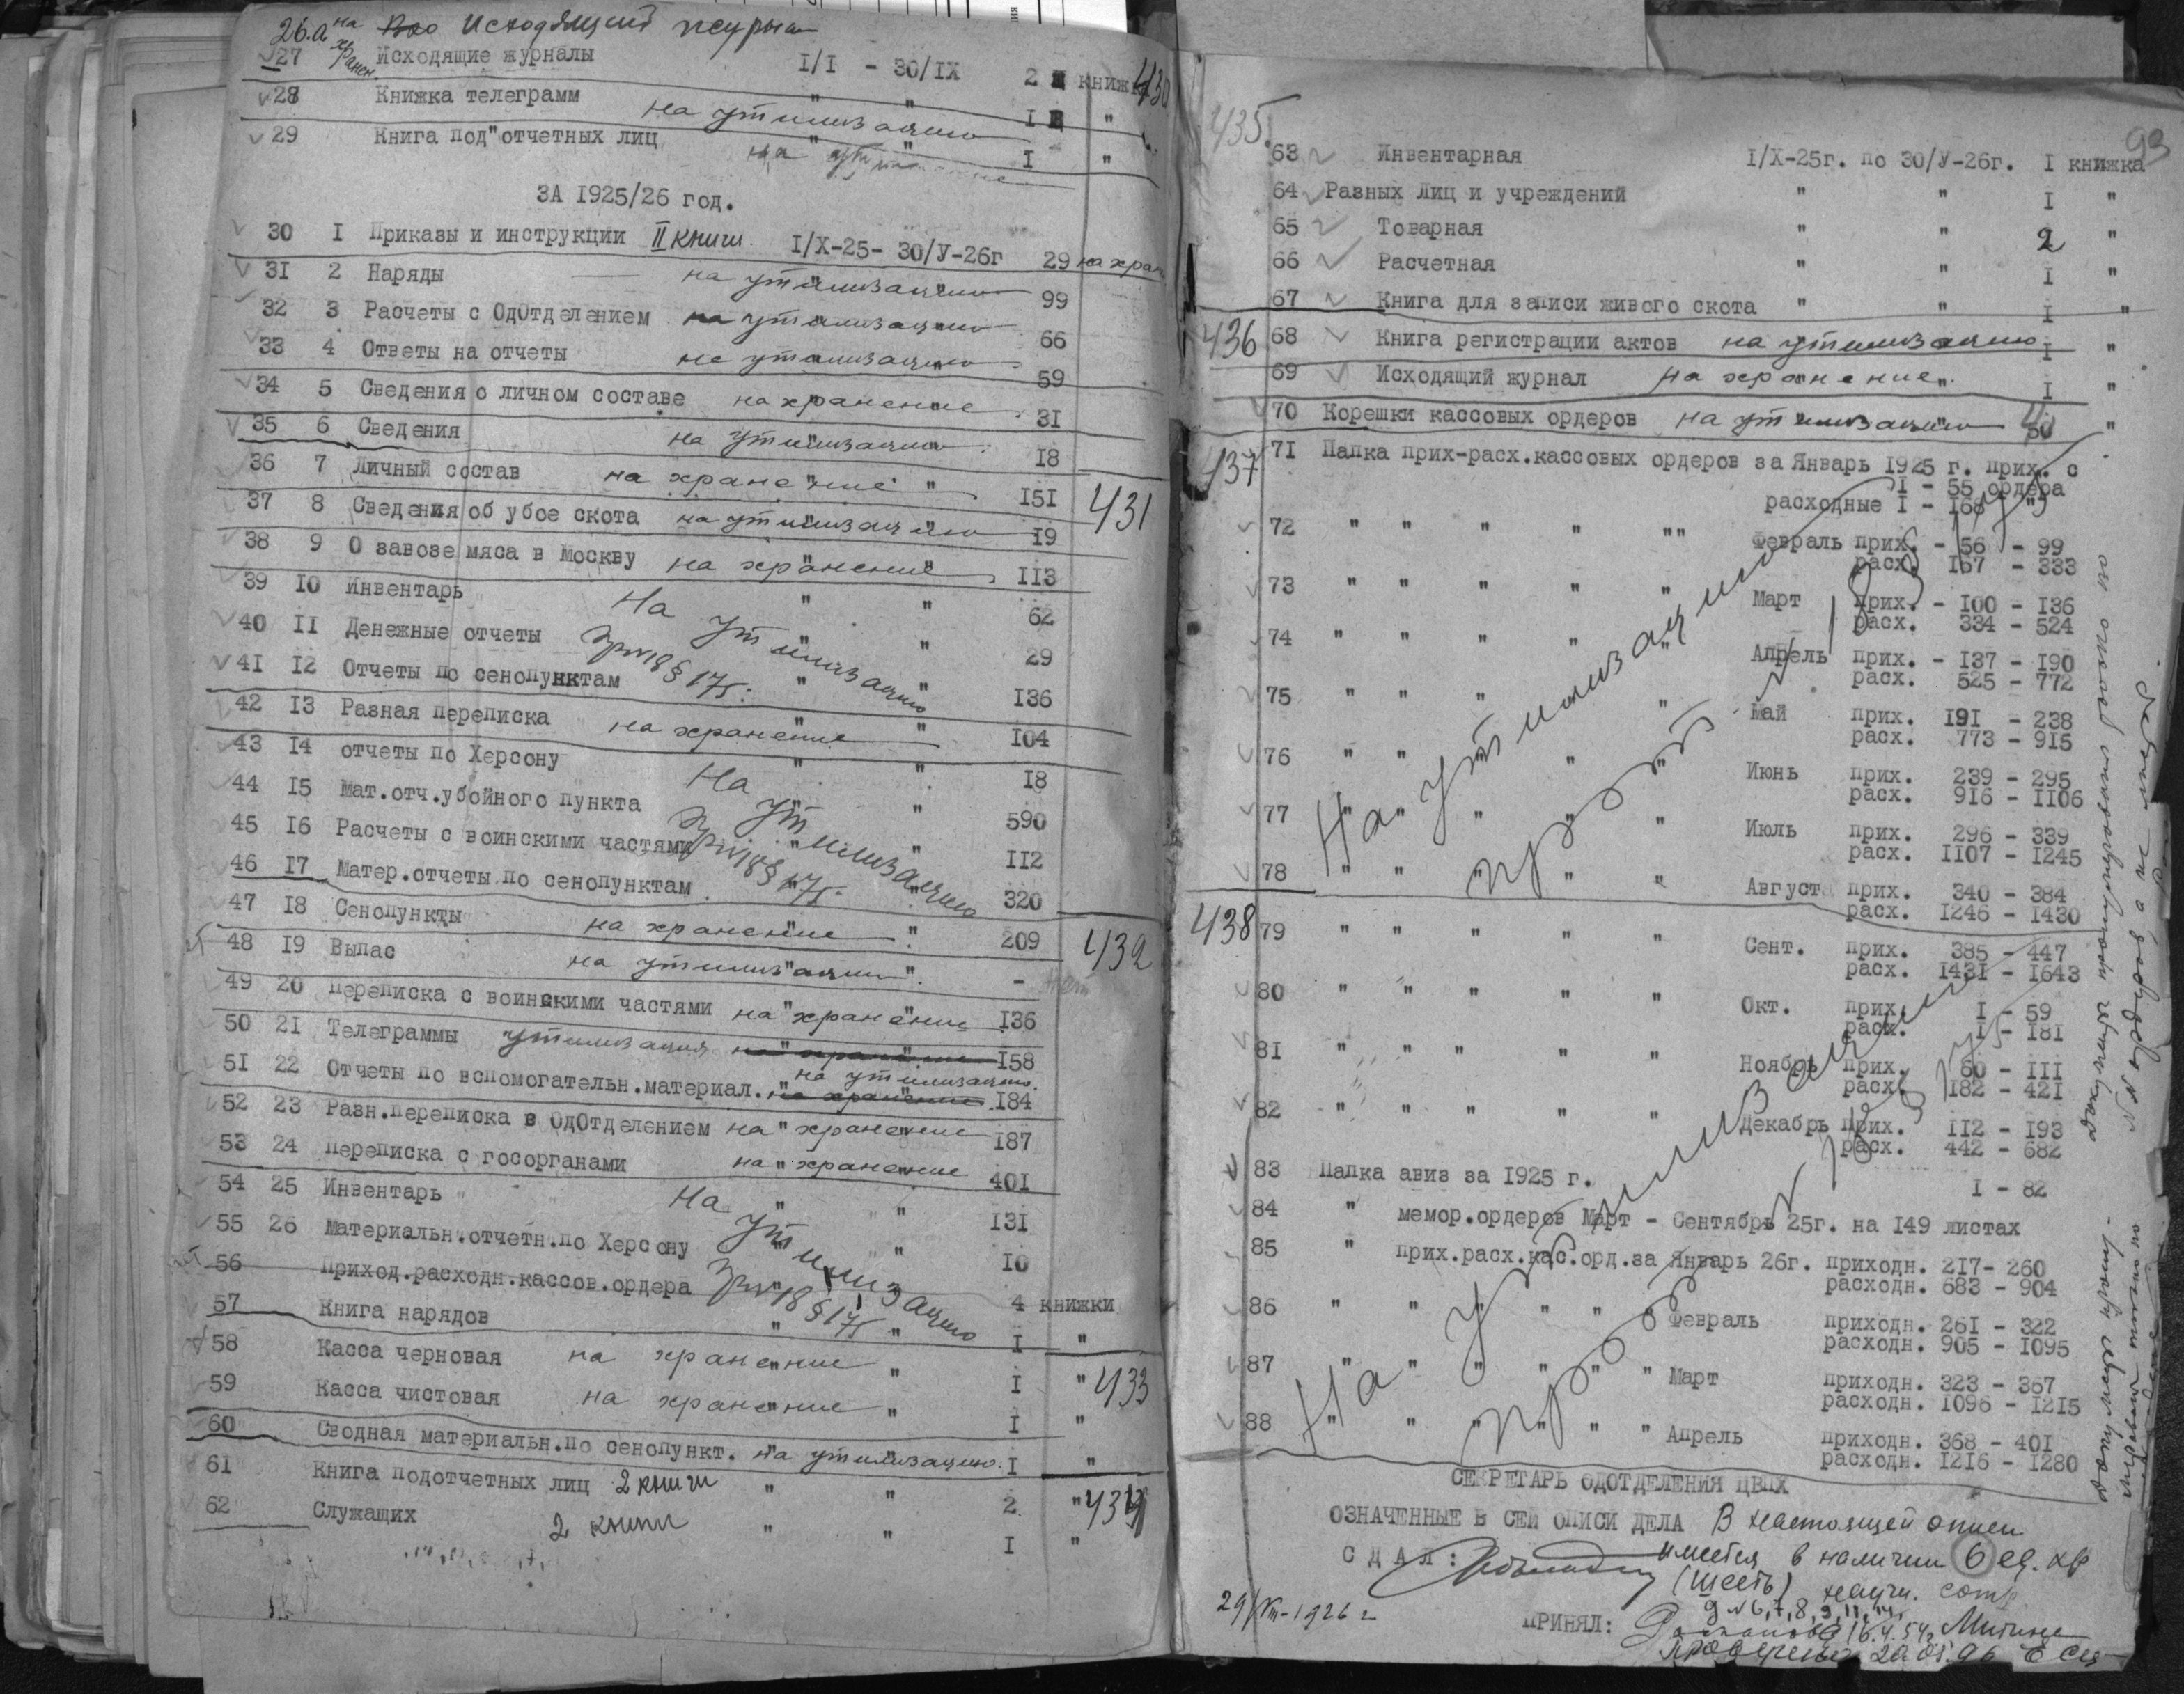 26.а на хранен. Исходящий журнал
27 Исходящие журналы I/I - 30/IX 2 книж 430
28 Книжка телеграмм " " на утилизацию I "
29 Книга под"отчетных лиц " " на I "
ЗА 1925/26 год.
30 I Приказы и инструкции II книги. I/X-25- 30/У-26г 29 на хран
31 2 Наряды на утилизацию 99
32 3 Расчеты с ОдОтделением на утилизацию 66
33 4 Ответы на отчеты на утилизацию 59
34 5 Сведения о личном составе на хранение 31
35 6 Сведения на утилизацию 18
36 7 Личный состав на хранение " 151 431
37 8 Сведения об убое скота на утилизацию 19
38 9 О завозе мяса в Москву на хранение 113
39 10 Инвентарь " " 62
На утилизацию
40 11 Денежные отчеты " " 29
пр №18 § 175.
41 12 Отчеты по сенопунктам " " 136
42 13 Разная переписка на хранение " 104
43 14 отчеты по Херсону " " 18
На утилизацию
44 15 Мат.отч.убойного пункта " " 590
45 16 Расчеты с воинскими частями " " 112
пр №18 § 175.
46 17 Матер.отчеты по сенопунктам " " 320
47 18 Сенопункты на хранение " 209
48 19 Выпас на утилизации " - нет 432
49 20 Переписка с воинскими частями на хранение 136
50 21 Телеграммы утилизация на хранение 158
51 22 Отчеты по вспомогательн.материал. на утилизацию. на хранение 184
52 23 Разн.переписка в ОдОтделением на хранение 187
53 24 Переписка с госорганами на хранение 401
54 25 Инвентарь " " 131
На утилизацию
55 26 Материальн.отчетн.по Херсону " " 10
56 Приход.расходн.кассов.ордера " 4 книжки
пр №18 § 175
57 Книга нарядов " " I "
58 Касса черновая на хранение " I " 433
59 Касса чистовая на хранение " I "
60 Сводная материальн.по сенопункт. на утилизацию. I "
61 Книга подотчетных лиц 2 книги " " 2 " 434
62 Служащих 2 книги " " I "
93
435.
63 Инвентарная I/X-25г. по 30/У-26г. I книжка
64 Разных лиц и учреждений " " I "
65 Товарная " " 2 "
66 Расчетная " " I "
67 Книга для записи живого скота " " I "
436 68 Книга регистрации актов на утилизацию I "
69 Исходящий журнал на хранение. I "
70 Корешки кассовых ордеров на утилизацию 50 "
437 71 Папка прих-расх.кассовых ордеров за Январь 1925 г. прих. с
I - 55 ордера
расходные I - 168 "
72 " " " " "" Февраль прих. - 56 - 99
расх. 167 - 333
73 " " " " " Март прих. - 100 - 136
расх. 334 - 524
74 " " " " " Апрель прих. - 137 - 190
расх. 525 - 772
75 " " " " Май прих. 191 - 238
расх. 773 - 915
76 " " " " " Июнь прих. 239 - 295
расх. 916 - 1106
77 " " " " " Июль прих. 296 - 339
расх. 1107 - 1245
78 " " " " " Август прих. 340 - 384
расх. 1246 - 1430
На утилизацию
438 79 " " " " " Сент. прих. 385 - 447
расх. 1431 - 1643
80 " " " " " Окт. прих. I - 59
расх. I - 181
81 " " " " " Ноябрь прих. 60 - 111
расх. 182 - 421
82 " " " " " Декабрь прих. 112 - 193
расх. 442 - 682
83 Папка авиз за 1925 г. I - 82
84 " мемор.ордеров Март - Сентябрь 25г. на 149 листах
85 " прих.расх.кас.орд.за Январь 26г. приходн. 217- 260
расходн. 683 - 904
86 " " " " " " Февраль приходн. 261 - 322
расходн. 905 - 1095
87 " " " " " " Март приходн. 323 - 367
расходн. 1096 - 1215
88 " " " " " " Апрель приходн. 368 - 401
расходн. 1216 - 1280
На утилизации
СЕКРЕТАРЬ ОДОТДЕЛЕНИЯ ЦВПХ
ОЗНАЧЕННЫЕ В СЕЙ ОПИСИ ДЕЛА В настоящей описи
СДАЛ: имеется в наличии 6 ед. хр
(шесть) научн. сотр
29/ -1926 г
ПРИНЯЛ: 16.4.54г.